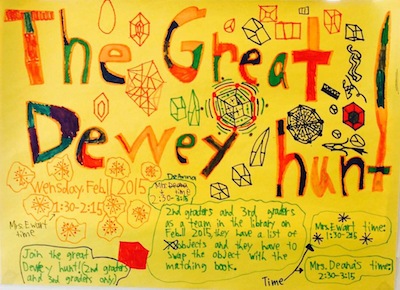 The Great
Dewey hunt!
Wensday, Feb 11 2015
1:30-2:15
Mrs. Ewart
time
DeAnna
Mrs. Deana
time
2:30-3:15
2nd graders and 3rd graders
as a team in the library on
Feb 11 2015, they have a list of
objects and they have to
swap the object with the
matching book.
Join the great
Dewey hunt! (2nd graders
and 3rd graders only)
Mrs. Ewart time:
1:30-2:15
Mrs. Deana's time:
2:30-3:15
Time